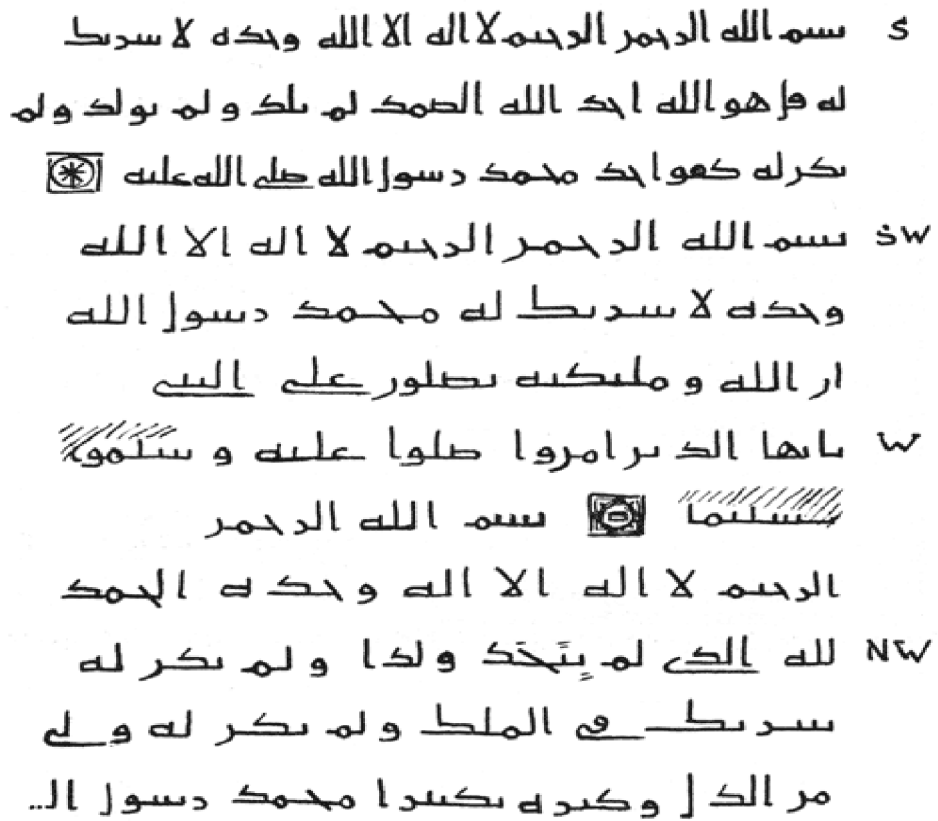 S بسم الله الرحمن الرحيم لا اله الا الله وحده لا شريك
له قل هو الله احد الله الصمد لم يلد ولم يولد ولم
يكن له كفوا احد محمد رسول الله صلى الله عليه
SW بسم الله الرحمن الرحيم لا اله الا الله
وحده لا شريك له محمد رسول الله
ان الله وملئكته يصلون على النبي
W يايها الذين امنوا صلوا عليه وسلموا
تسليما بسم الله الرحمن
الرحيم لا اله الا الله وحده الحمد
NW لله الذي لم يتخذ ولدا ولم يكن له
شريك في الملك ولم يكن له ولي
من الذل وكبره تكبيرا محمد رسول ا لـ..